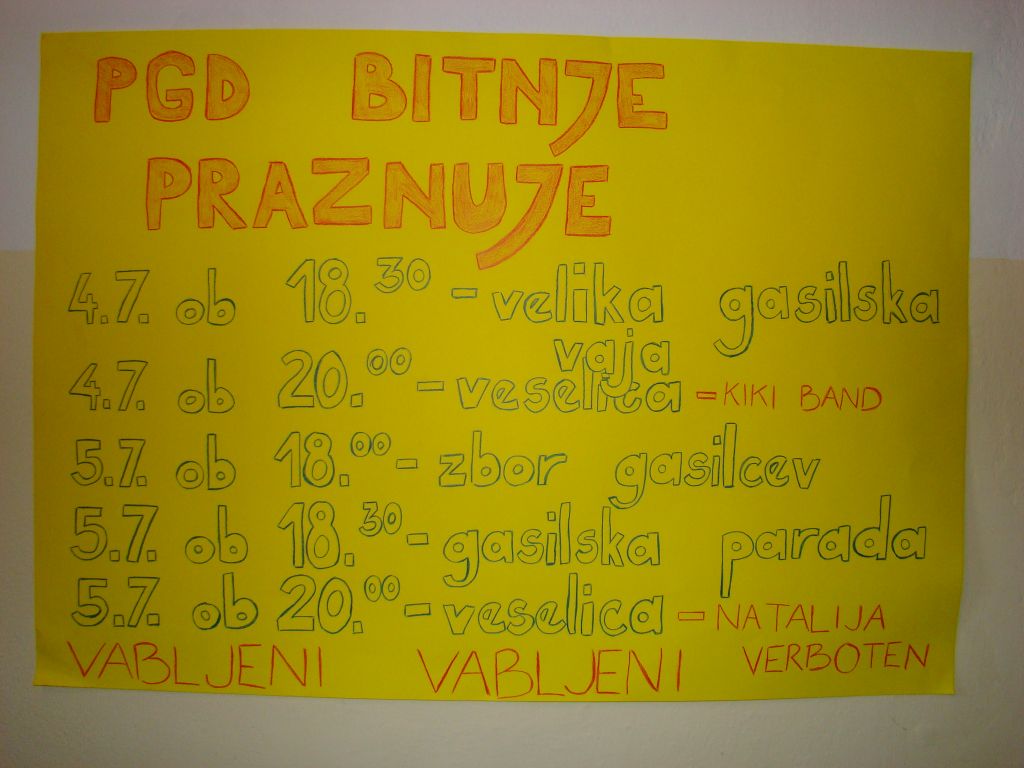 PGD BITNJE
PRAZNUJE
4.7. ob 18.30 - velika gasilska
vaja
4.7. ob 20.00 - veselica - KIKI BAND
5.7. ob 18.00 - zbor gasilcev
5.7. ob 18.30 - gasilska parada
5.7. ob 20.00 - veselica - NATALIJA
VERBOTEN
VABLJENI VABLJENI